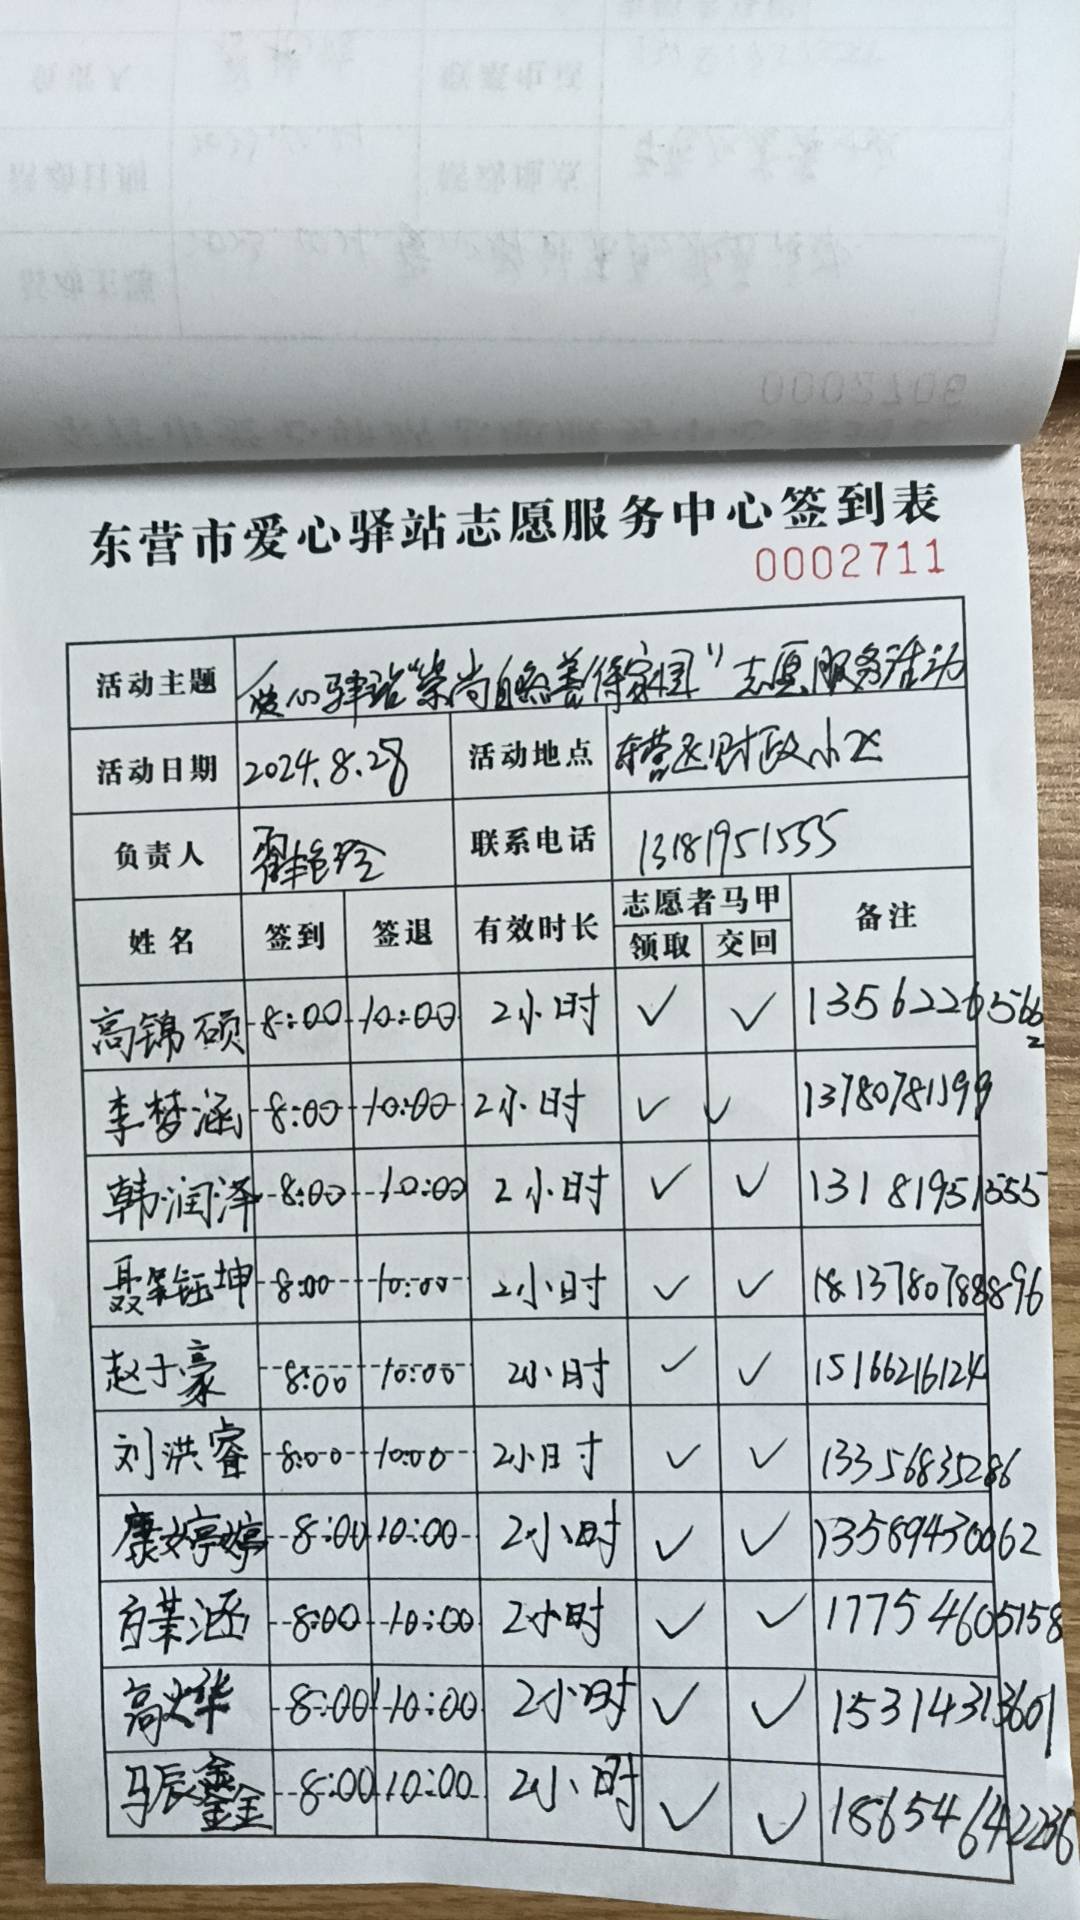 0002709
东营市爱心驿站志愿服务中心签到表
0002711
活动主题 爱心驿站“崇尚自然善待家园”志愿服务活动
活动日期 2024.8.28 活动地点 东营区财政小区
负责人 翟艳玲 联系电话 13181951555
姓名 签到 签退 有效时长 志愿者马甲 备注
领取 交回
高锦硕 8:00 10:00 2小时 ✓ ✓ 13562265662
李梦涵 8:00 10:00 2小时 ✓ ✓ 13780781199
韩润泽 8:00 10:00 2小时 ✓ ✓ 13181951555
聂钰坤 8:00 10:00 2小时 ✓ ✓
赵于豪 8:00 10:00 2小时 ✓ ✓ 15166216124
刘洪睿 8:00 10:00 2小时 ✓ ✓ 13356835286
康婷婷 8:00 10:00 2小时 ✓ ✓ 13589430062
8:00 10:00 2小时 ✓ ✓ 17754605158
高烨 8:00 10:00 2小时 ✓ ✓ 15314313601
马辰鑫 8:00 10:00 2小时 ✓ ✓ 18654642236